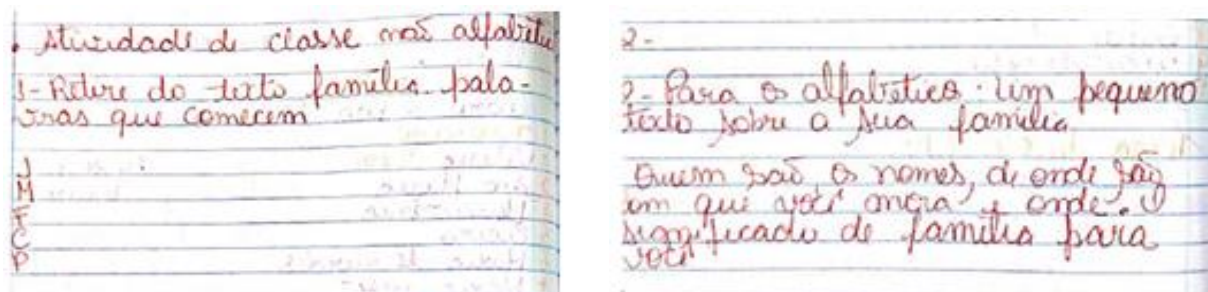 . Atividade de classe não alfabetic
1- Retire do texto família pala-
vras que comecem
J
M
F
C
P
2-
2- Para os alfabetico: Um pequeno
texto sobre a sua família
Quem são, os nomes, de onde são
em que você mora, e onde. O
significado de família para
você